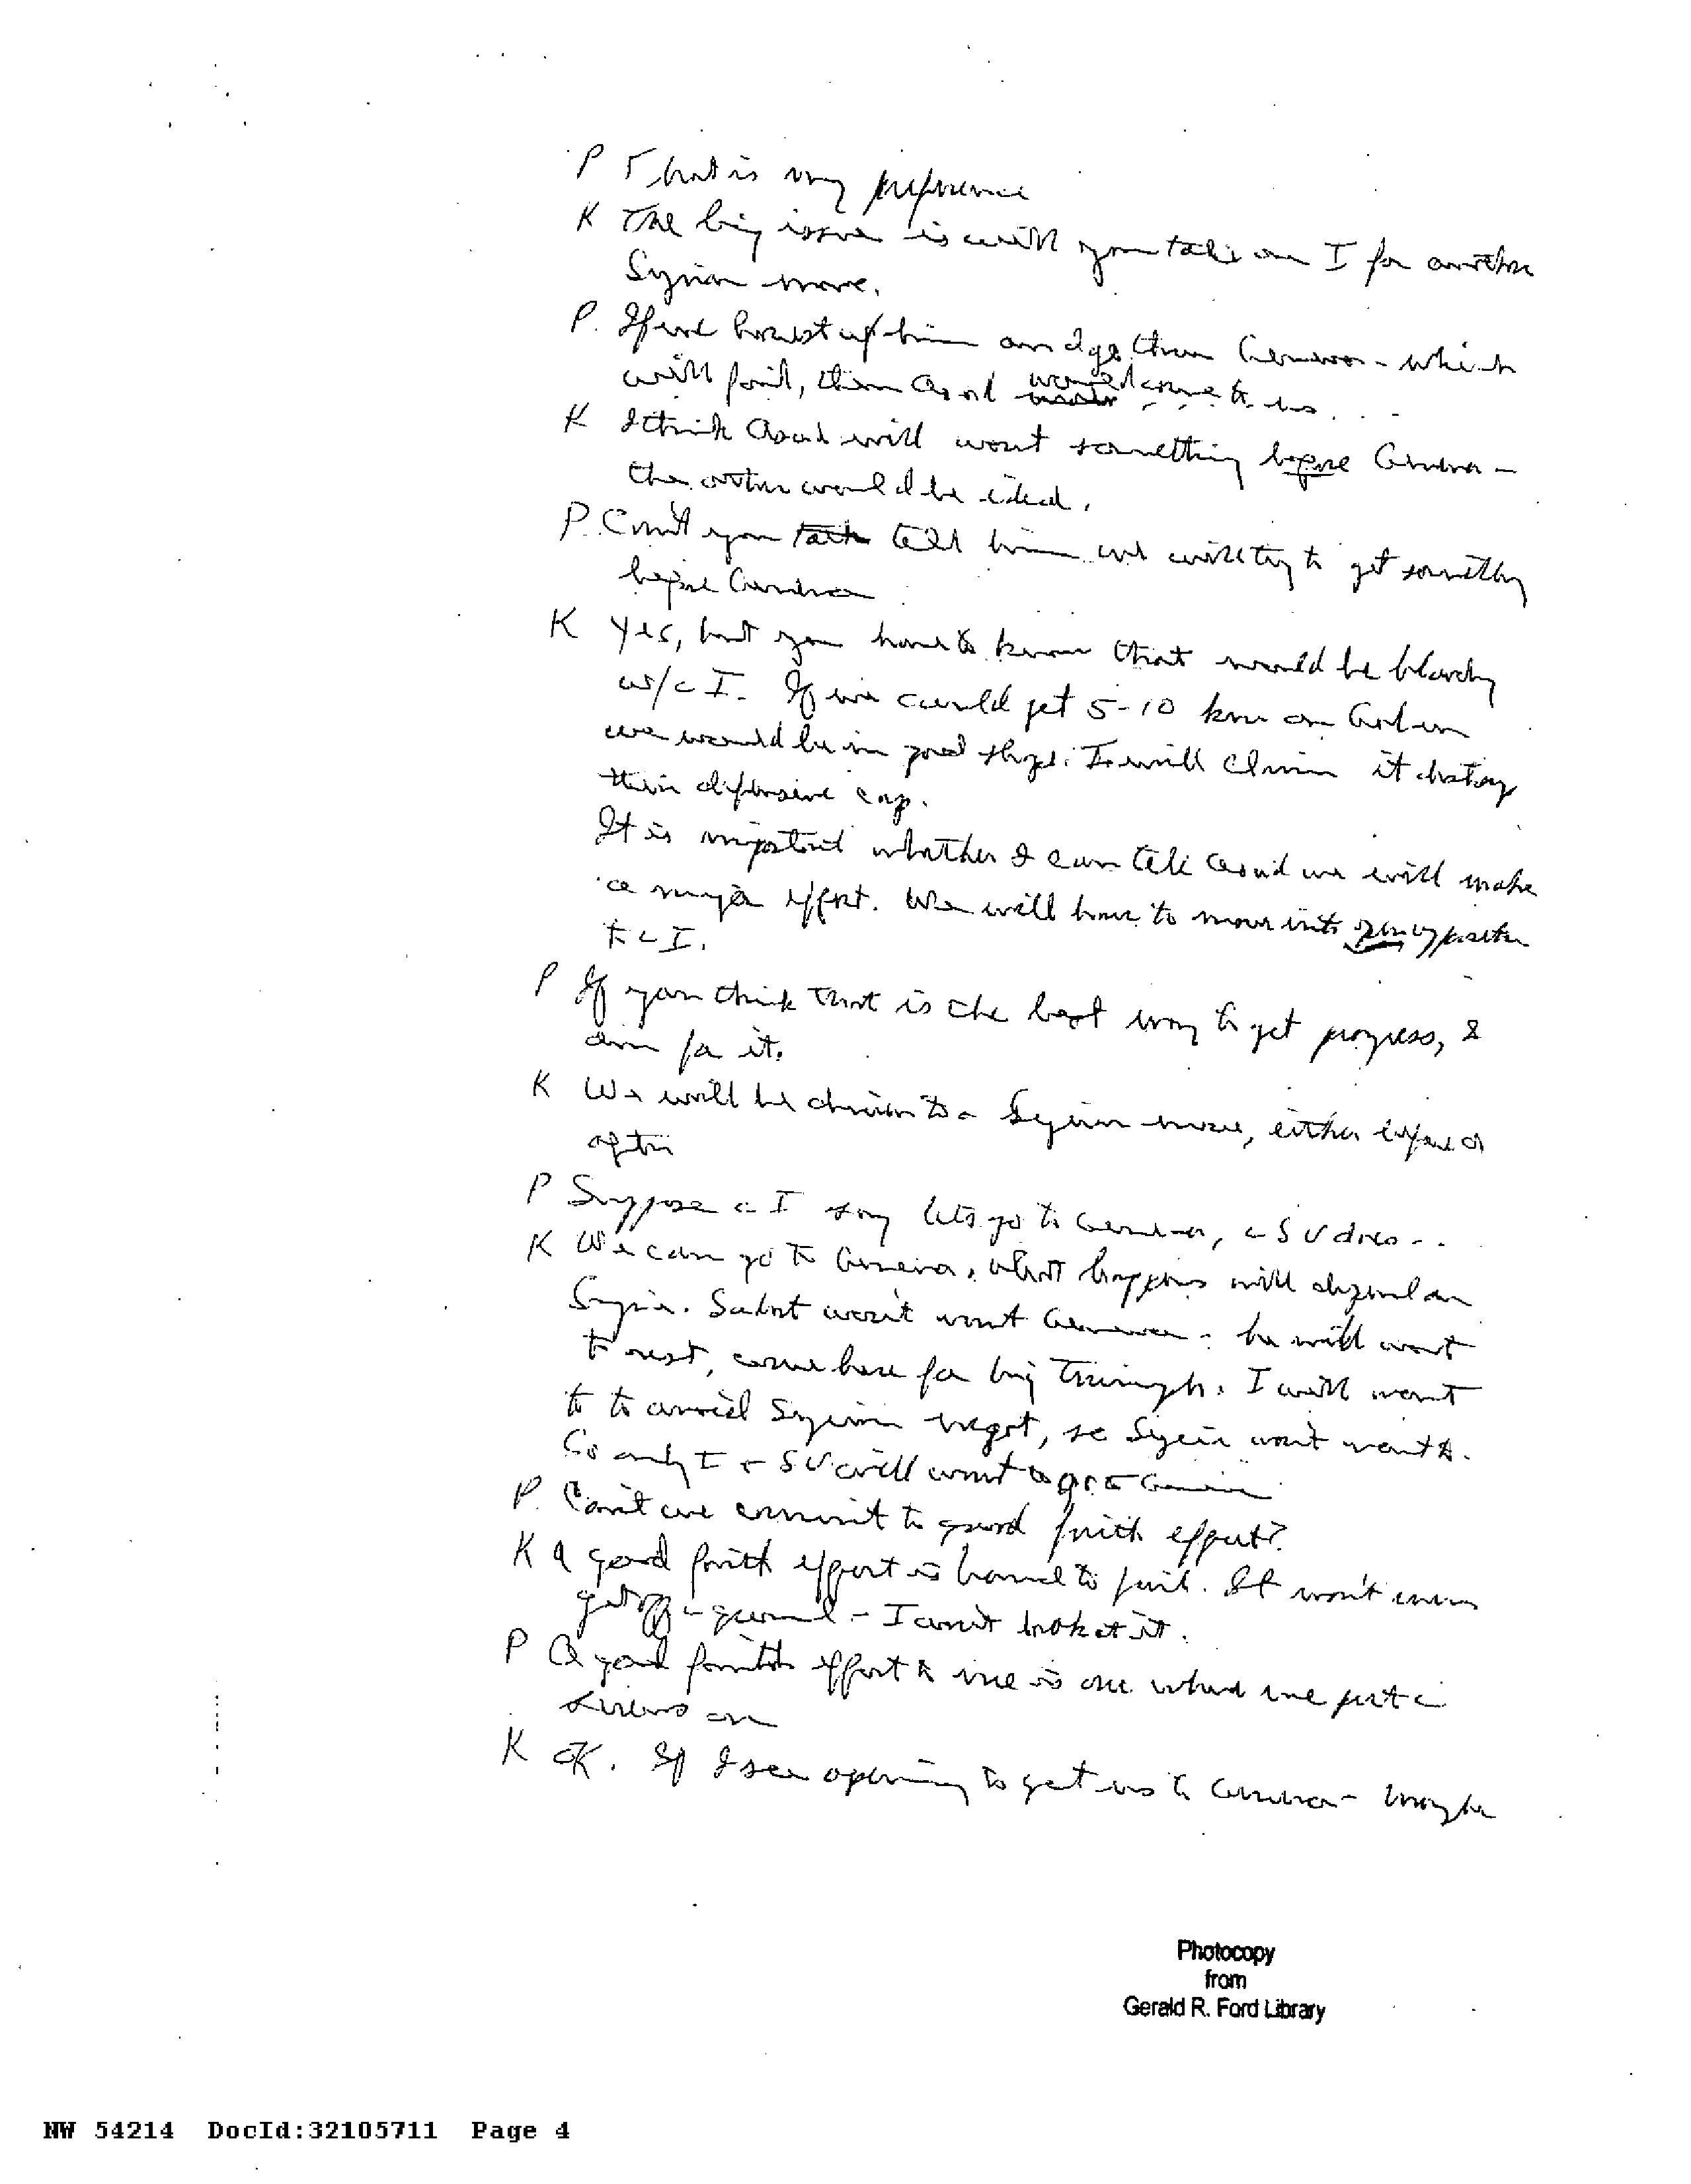 P That is my preference
K The big issue is will you take on I for another
Syrian move.
P. If we hoist up him and go thru Geneva - which
will fail, then Asad would come to us . . .
K I think Asad will want something before Geneva -
the other would be ideal.
P. Can't you talk tell him we will try to get something
before Geneva
K Yes, but you have to know that would be bloody
w/ I. If we could get 5-10 km on Golan
we would be in good shape. I will claim it destroys
their defensive cap.
It is important whether I can tell Asad we will make
a major effort. We will have to move into
to I.
P If you think that is the best way to get progress, I
am for it.
K We will be driven to a Syrian move, either before or
after
P Suppose I say lets go to Geneva, SU does - .
K We can go to Geneva, what happens will depend on
Syria. Sadat won't want Geneva - he will want
to rest, come here for big triumph. I will want
to to avoid Syrian negot, so Syria won't want to.
So only I + SU will want to go to Geneva
P. Can't we commit to good faith effort?
K A good faith effort is bound to fail. It won't even
get off ground - I won't look at it.
P A good faith effort to me is one where we put
screws on
K OK. If I see opening to get us to Geneva - maybe
Photocopy
from
Gerald R. Ford Library
NW 54214 DocId:32105711 Page 4